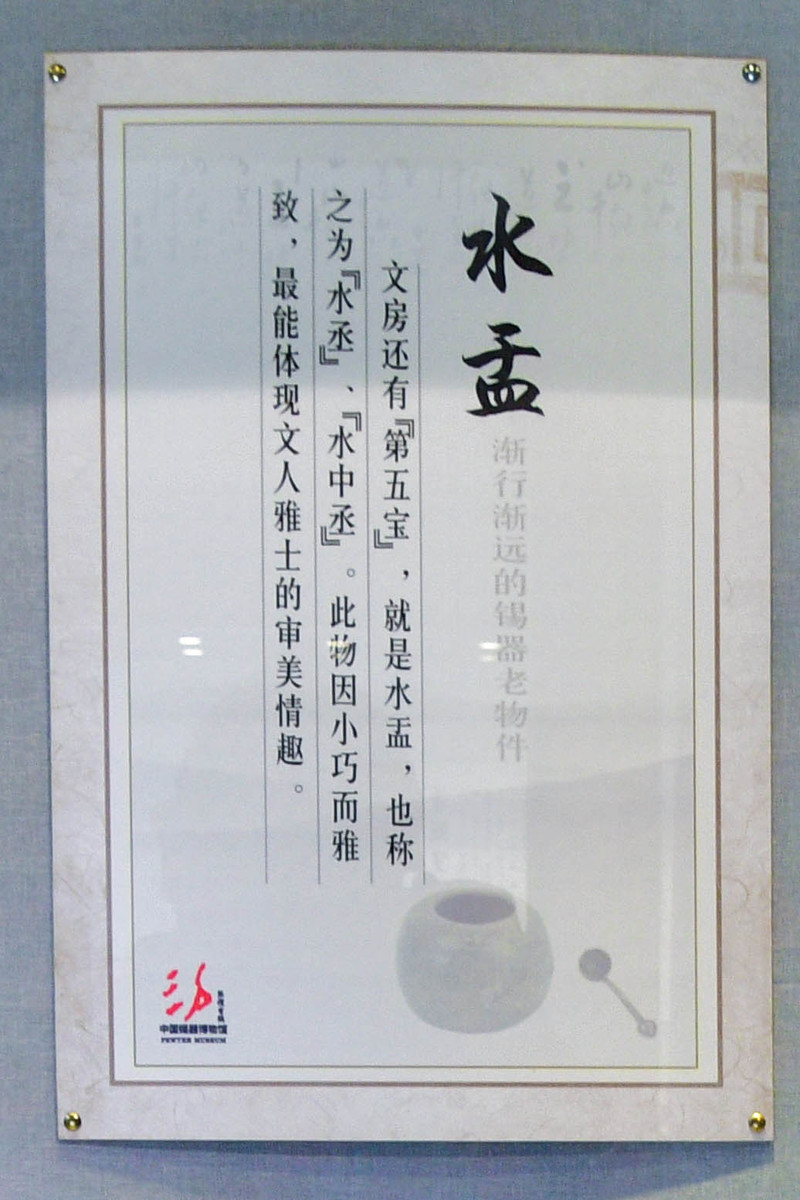 水盂
渐行渐远的锡器老物件
文房还有『第五宝』，就是水盂，也称
之为『水丞』、『水中丞』。此物因小巧而雅
致，最能体现文人雅士的审美情趣。
中国锡器博物馆
PEWTER MUSEUM